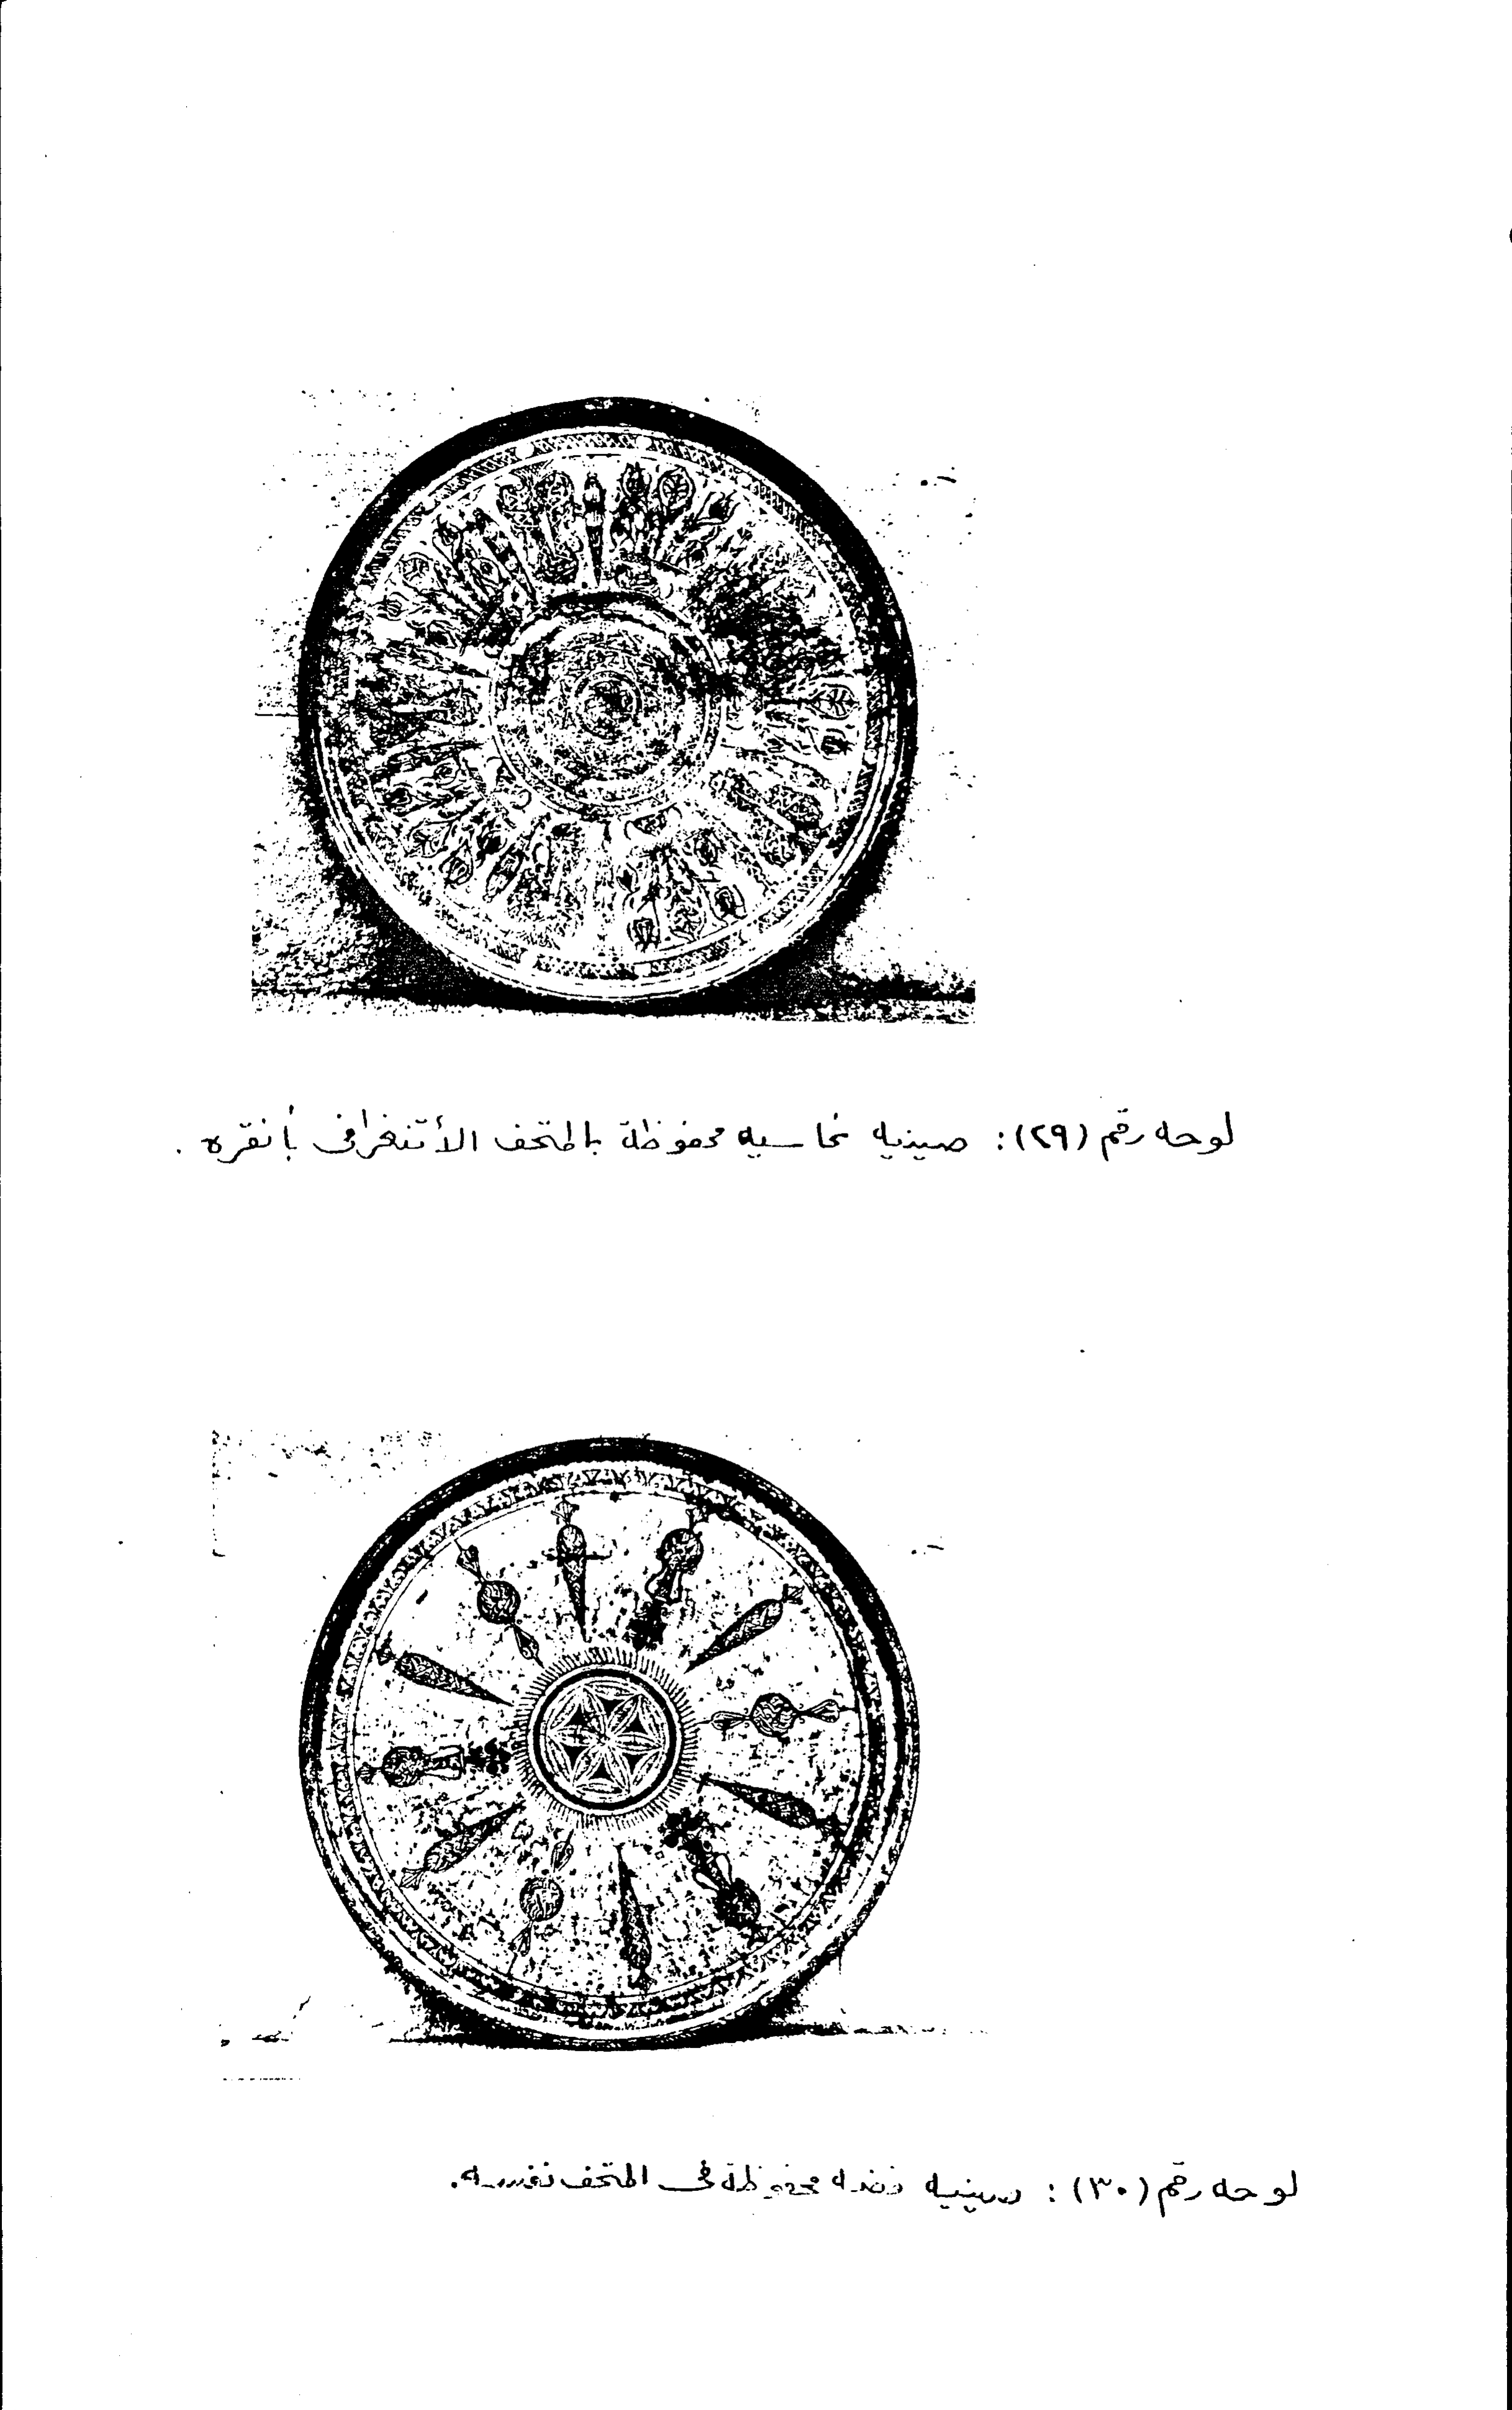 لوحه رقم (٢٩): صينيه نحاسيه محفوظة بالمتحف الأتنغرافى بأنقره .
لوحه رقم (٣٠): صينيه فضه محفوظة فى المتحف نفسه.